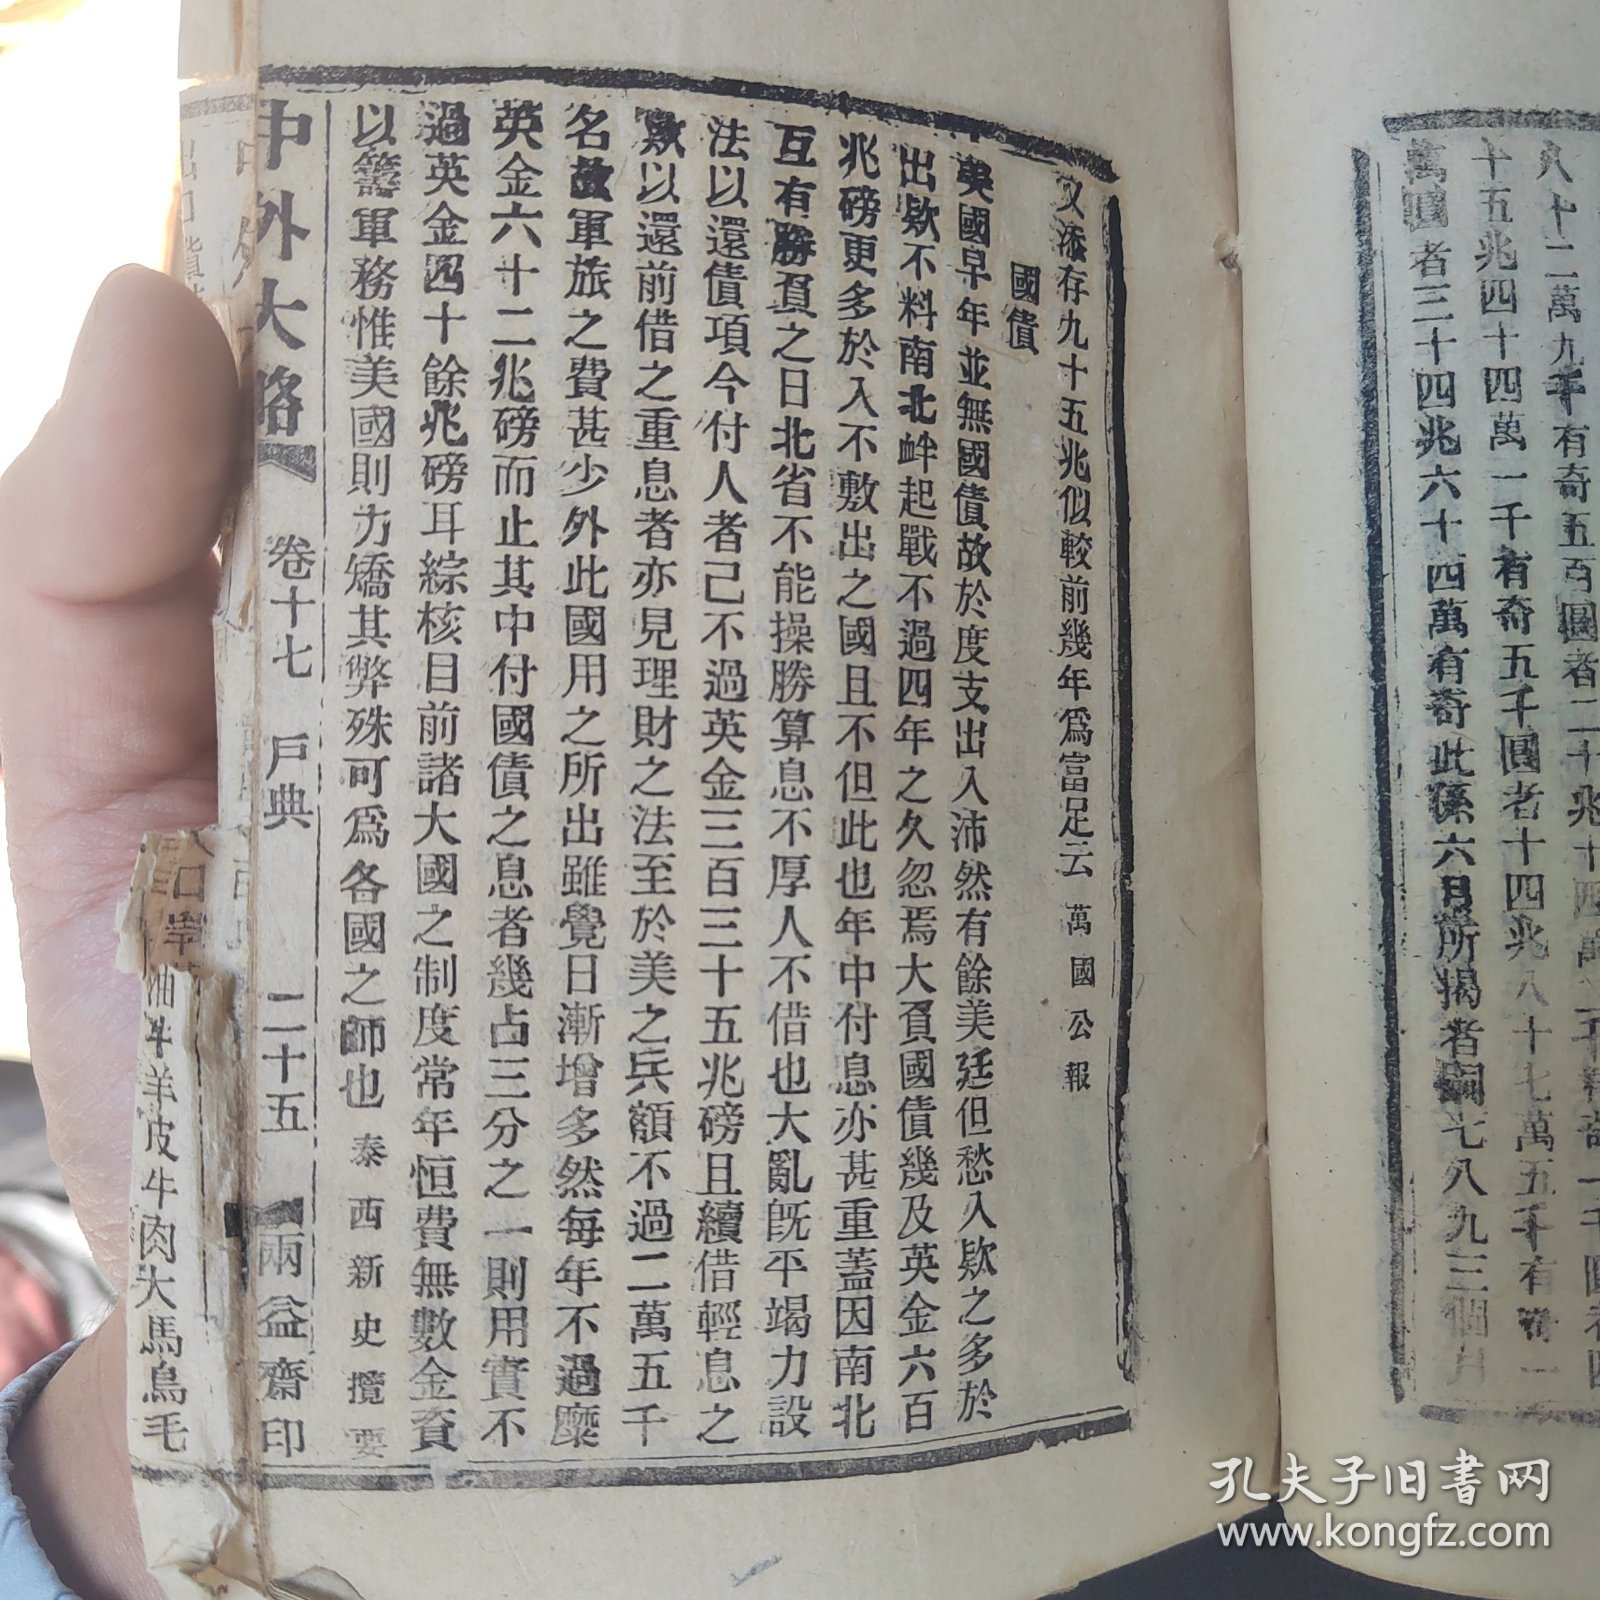 十五兆四十四萬一千有奇五千圓者十四兆八十七萬五千有奇一
萬圓者三十四兆六十四萬有奇此係六月所揭者嗣七八九三個月
又添存九十五兆似較前幾年爲富足云 萬國公報
國債
美國早年並無國債故於度支出入沛然有餘美廷但愁入欵之多於
出欵不料南北衅起戰不過四年之久忽焉大負國債幾及英金六百
兆磅更多於入不敷出之國且不但此也年中付息亦甚重蓋因南北
互有勝負之日北省不能操勝算息不厚人不借也大亂既平竭力設
法以還債項今付人者己不過英金三百三十五兆磅且續借輕息之
欵以還前借之重息者亦見理財之法至於美之兵額不過二萬五千
名故軍旅之費甚少外此國用之所出雖覺日漸增多然每年不過糜
英金六十二兆磅而止其中付國債之息者幾占三分之一則用實不
過英金四十餘兆磅耳綜核目前諸大國之制度常年恒費無數金資
以籌軍務惟美國則力矯其弊殊可爲各國之師也 泰西新史攬要
中外大略 卷十七 戶典 二十五 兩益齋印
油牛羊皮牛肉大馬烏毛
孔夫子旧书网
www.kongfz.com